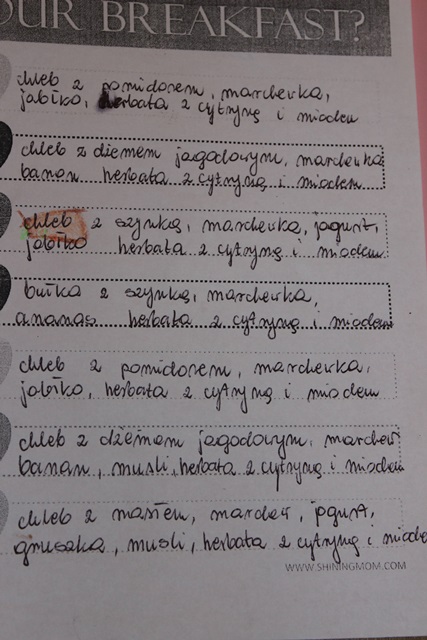 OUR BREAKFAST?
chleb z pomidorem, marchewka,
jabłko, herbata z cytryną i miodem
chleb z dżemem jagodowym, marchewka
banan herbata z cytryną i miodem
chleb z szynką, marchewka, jogurt,
jabłko herbata z cytryną i miodem
bułka z szynką, marchewka,
ananas herbata z cytryną i miodem
chleb z pomidorem, marchewka,
jabłko, herbata z cytryną i miodem
chleb z dżemem jagodowym, marchew
banan, musli, herbata z cytryną i miodem
chleb z masłem, marchew, jogurt,
gruszka, musli, herbata z cytryną i miode
WWW.SHININGMOM.COM